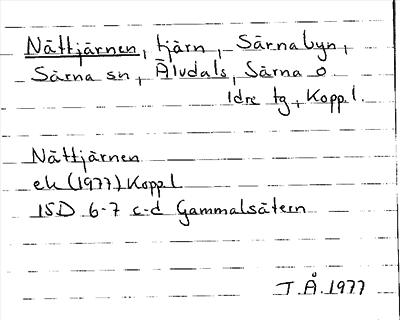 Nättjärnen, tjärn, Särnabyn,
Särna sn, Älvdals, Särna o
Idre tg, Koppl.
Nättjärnen
ek (1977) Koppl
15D 6-7 c-d Gammalsätern
T.Å. 1977